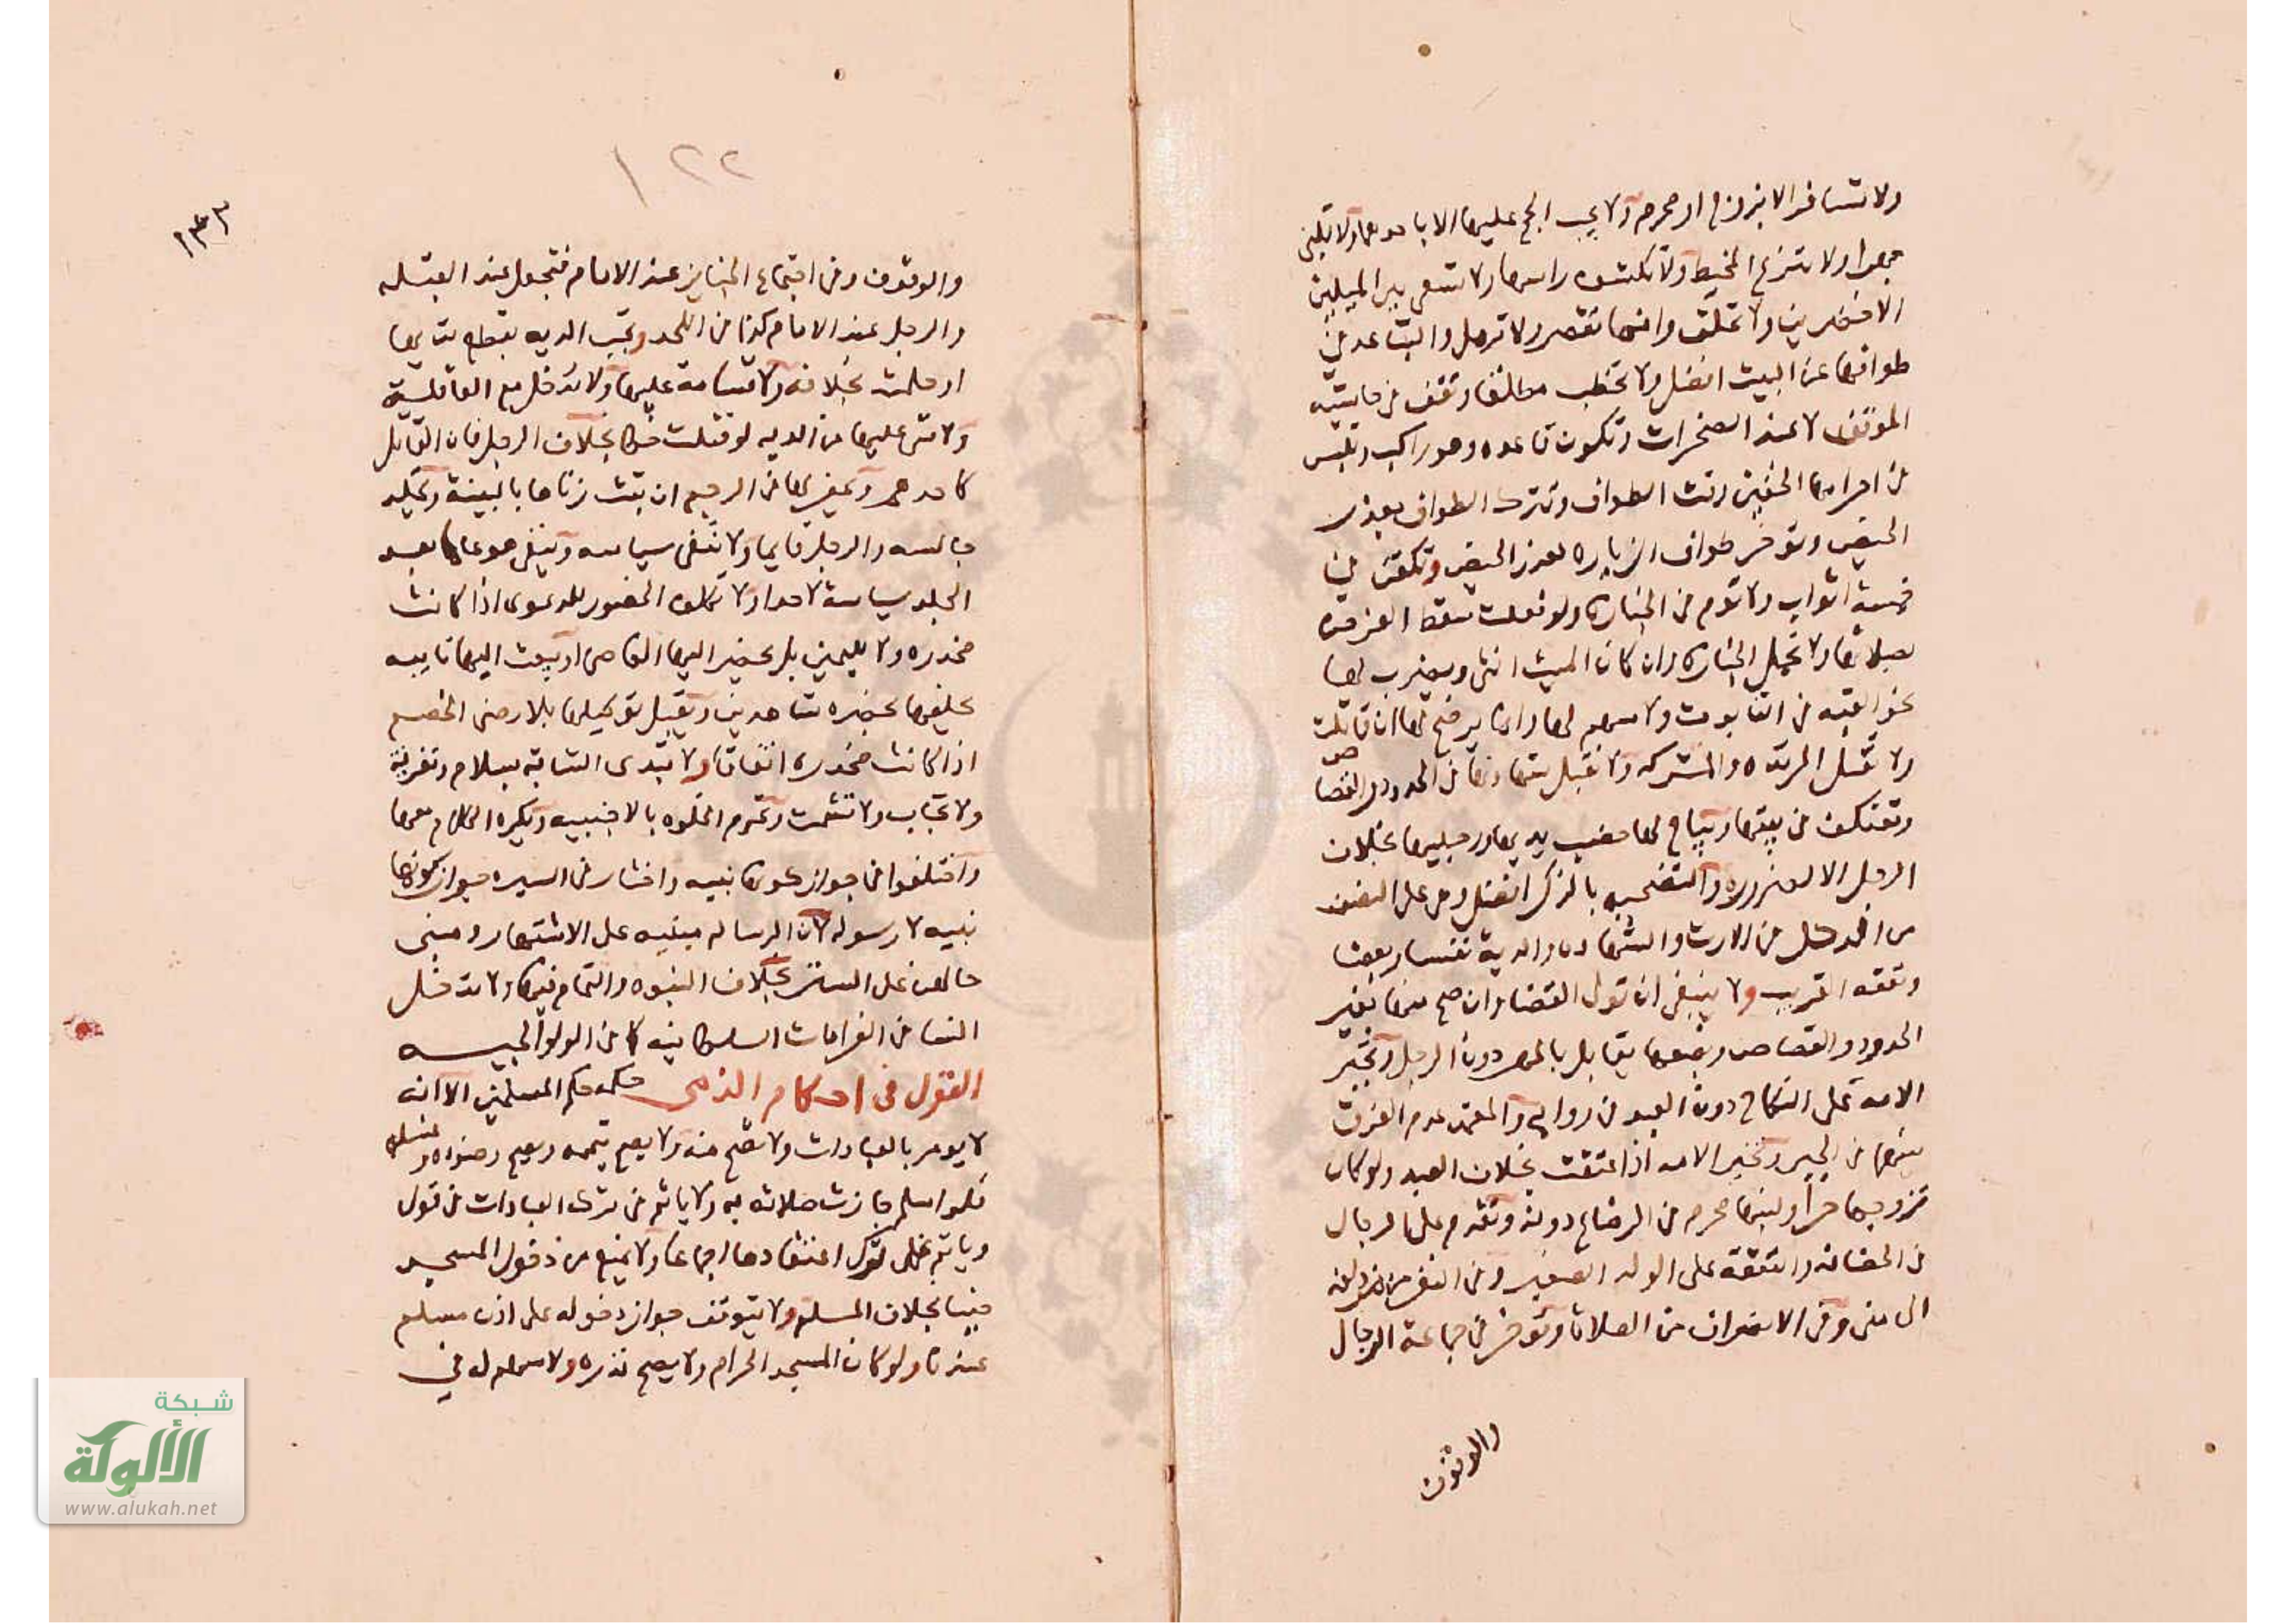 ولا تسافر الا بزوج او محرم ولا يجب الحج عليها الا باحدهما ولا تلبي
جهرا ولا تنزع المخيط ولا تكشف راسها ولا تسعى بين الميلين
الاخضرين ولا تحلق وانما تقصر ولا ترمل والتباعد في
طوافها عن البيت افضل ولا تخطب مطلقا وتقف في حاشية
الموقف لا عند الصخرات وتكون قاعده وهو راكب وتلبس
في احرامها الخفين وتترك الطواف بعذر
الحيض وتوخر طواف الزياره لعذر الحيض وتكفن في
خمسة اثواب ولا تؤم في الجنازه ولو فعلت سقط الفرض
بصلاتها ولا تحمل الجنازه وان كان الميت انثى ويضرب لها
نحو القبه في التابوت ولا سهم لها وانما يرضخ لها ان قاتلت
ولا تقتل المرتده والمشركه ولا تقبل شهادتها في الحدود والقصاص
وتعتكف في بيتها ويباح لها خضب يديها ورجليها بخلاف
الرجل الا لضروره والتضحيه بالذكر افضل وهي على النصف
من الرجل في الارث والشهاده والدية نفسا وبعضا
ونفقه القريب ولا ينبغي ان تولى القضا وان صح منها بغير
الحدود والقصاص وبضعها يقابل بالمهر دون الرجل وتجبر
الامه على النكاح دون العبد في روايه والمعتمد عدم الفرق
بينهما في الجبر وتخير الامه اذا اعتقت بخلاف العبد ولو كان
زوجها حرا ولبنها محرم في الرضاع دونه وتقدم على الرجال
في الحضانه والنفقة على الولد الصغير وفي النفر من مزدلفه
الى منى وفي الانصراف من الصلاة وتوخر في جماعة الرجال
والموقف
١٢٢
١٣٣
والموقف وفي اجتماع الجنايز عند الامام فتجعل عند القبله
والرجل عند الامام كذا في اللحد وتجب الديه بقطع ثديها
او حلمته بخلافه ولا قسامة عليها ولا تدخل مع العاقلة
ولا شي عليها من الديه لو قتلت خطا بخلاف الرجل فان القاتل
كاحدهم ويحفر لها في الرجم ان ثبت زناها بالبينة وتجلد
جالسه والرجل قايما ولا تنفى سياسه وينفى هو عاما بعد
الجلد سياسة لا حدا ولا تكلف الحضور للدعوى اذا كانت
مخدره ولا لليمين بل يحضر اليها القاضي او يبعث اليها نايبه
يحلفها بحضره شاهدين ويقبل توكيلها بلا رضى الخصم
اذا كانت مخدره اتفاقا ولا تبتدى الشابة بسلام وتعزية
ولا تجاب ولا تشمت وتحرم الخلوه بالاجنبيه ويكره الكلام معها
واختلفوا في جواز كونها نبيه واختار في المسايره جواز كونها
نبيه لا رسوله لان الرساله مبنيه على الاشتهار ومبنى
حالهن على الستر بخلاف النبوه والتمام فيها ولا تدخل
النسا في الغرامات السلطانيه كما في الولوالجيه
القول في احكام الذمي حكمه حكم المسلمين الا انه
لا يومر بالعبادات ولا تصح منه ولا يصح تيممه ويصح وضوءه وغسله
فلو اسلم جازت صلاته به ولا ياثم في ترك العبادات في قول
وياثم على ترك اعتقادها اجماعا ولا يمنع من دخول المسجد
جنبا بخلاف المسلم ولا يتوقف جواز دخوله على اذن مسلم
عندنا ولو كان المسجد الحرام ولا يصح نذره ولا سهم له في
شبكة
الألوكة
www.alukah.net